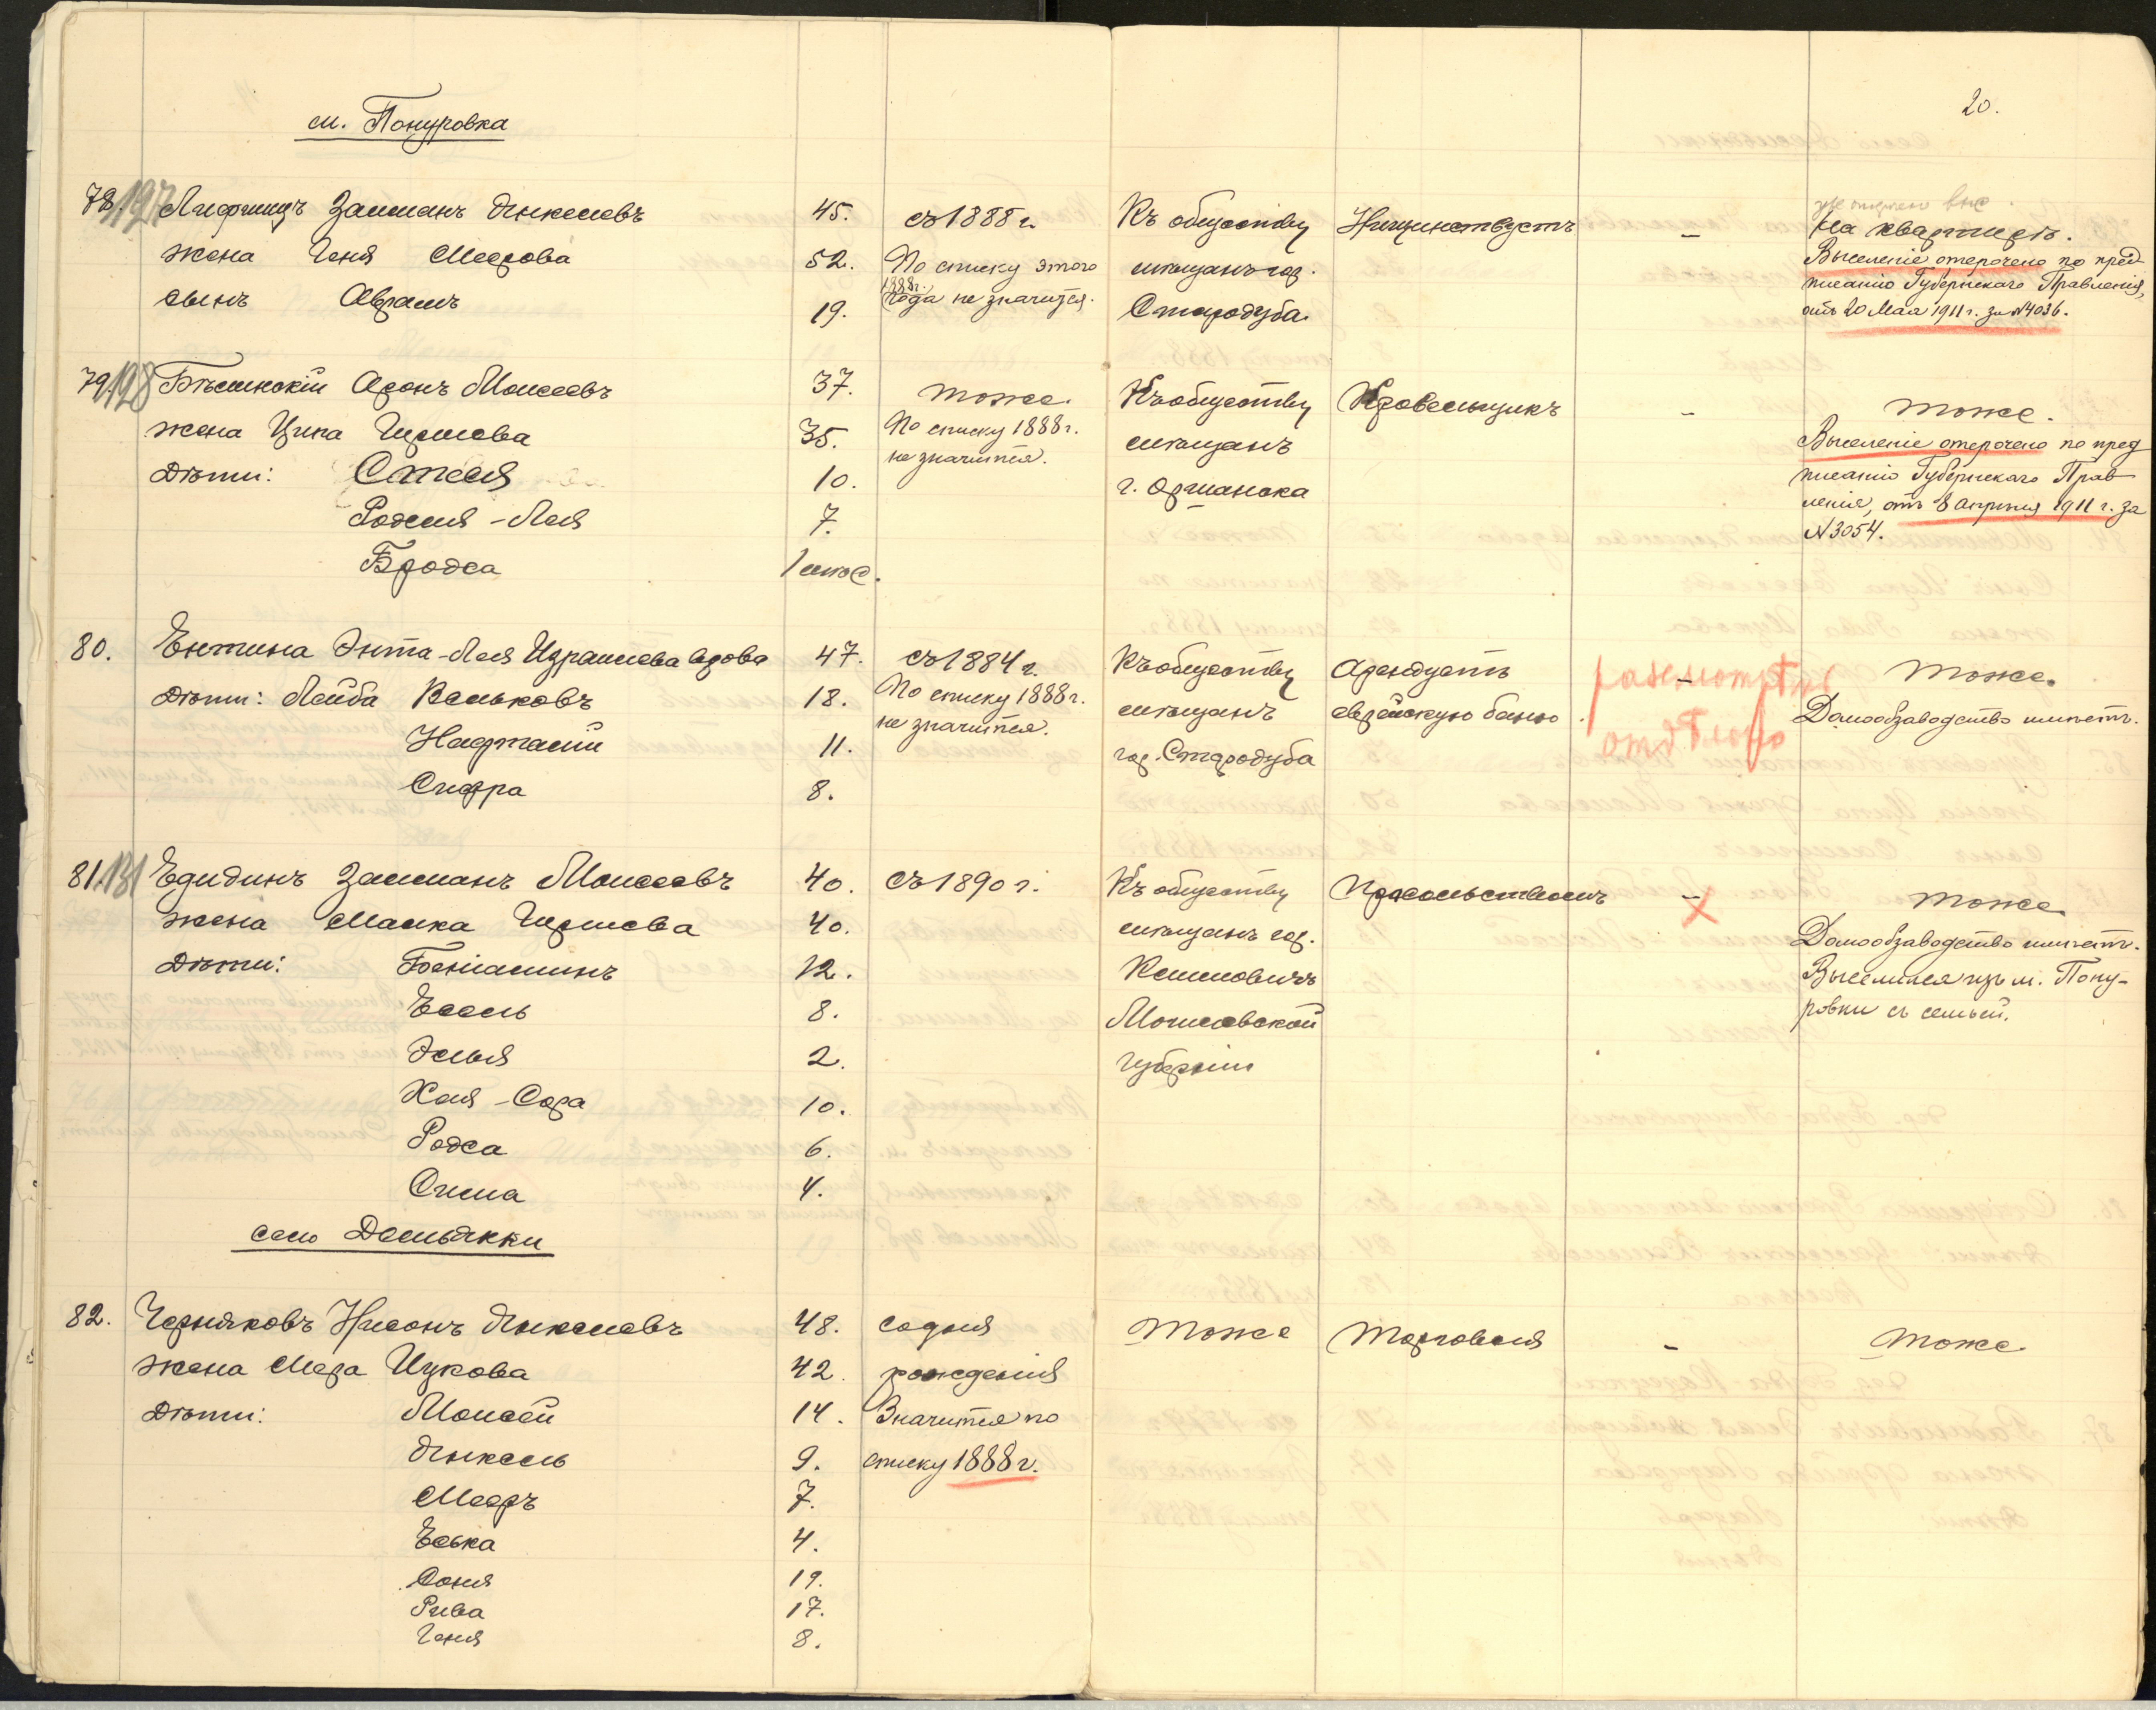 20.
м. Понуровка
78. 127 Лифшицъ Залманъ Янкелевъ 45. съ 1888 г. Къ обществу Нищинствуетъ - На квартирѣ.
жена Геня Меерова 52. По списку этого мѣщанъ гор. Выселеніе отсрочено по пред-
сынъ Абрамъ 19. 1888г. года не значится. Стародуба. писанію Губернскаго Правленія,
отъ 20 Мая 1911 г. за №4036.
79. 128 Бѣленскій Аронъ Моисеевъ 37. тоже. Къ обществу Кровельщикъ - тоже.
жена Ципа Гиршева 35. По списку 1888 г. мѣщанъ Выселеніе отсрочено по пред
дѣти: Стеся 10. не значится. г. Оршанска писанію Губернскаго Прав
Родсия-Лея 7. ленія, отъ 8 апрѣля 1911 г. за
Бродса 1 мѣс. №3054.
80. Ентина Энта-Лея Израилева вдова 47. съ 1884 г. Къ обществу Арендуетъ - тоже.
разсмотрѣть
дѣти: Лейба Вельковъ 18. По списку 1888 г. мѣщанъ еврейскую баню. Домообзаводство имѣетъ.
отдѣльно
Нафталій 11. не значится. гор. Стародуба
Сифра 8.
81. 131 Едидинъ Залманъ Моисеевъ 40. съ 1890 г. Къ обществу Прасольствомъ - тоже
жена Малка Гиршева 40. мѣщанъ гор. Домообзаводство имѣетъ.
дѣти: Беніаминъ 12. Климовичъ Выселился изъ м. Пону-
Ессель 8. Могилевской ровки съ семьей.
Элья 2. губерніи
Хая-Сора 10.
Родса 6.
Сима 4.
село Демьянки
82. Черняковъ Нисонъ Янкелевъ 48. со дня тоже торговля - тоже.
жена Мера Ицкова 42. рожденія
дѣти: Моисей 14. Значится по
Янкель 9. списку 1888 г.
Мееръ 7.
Еська 4.
Соня 19.
Рива 17.
Геня 8.